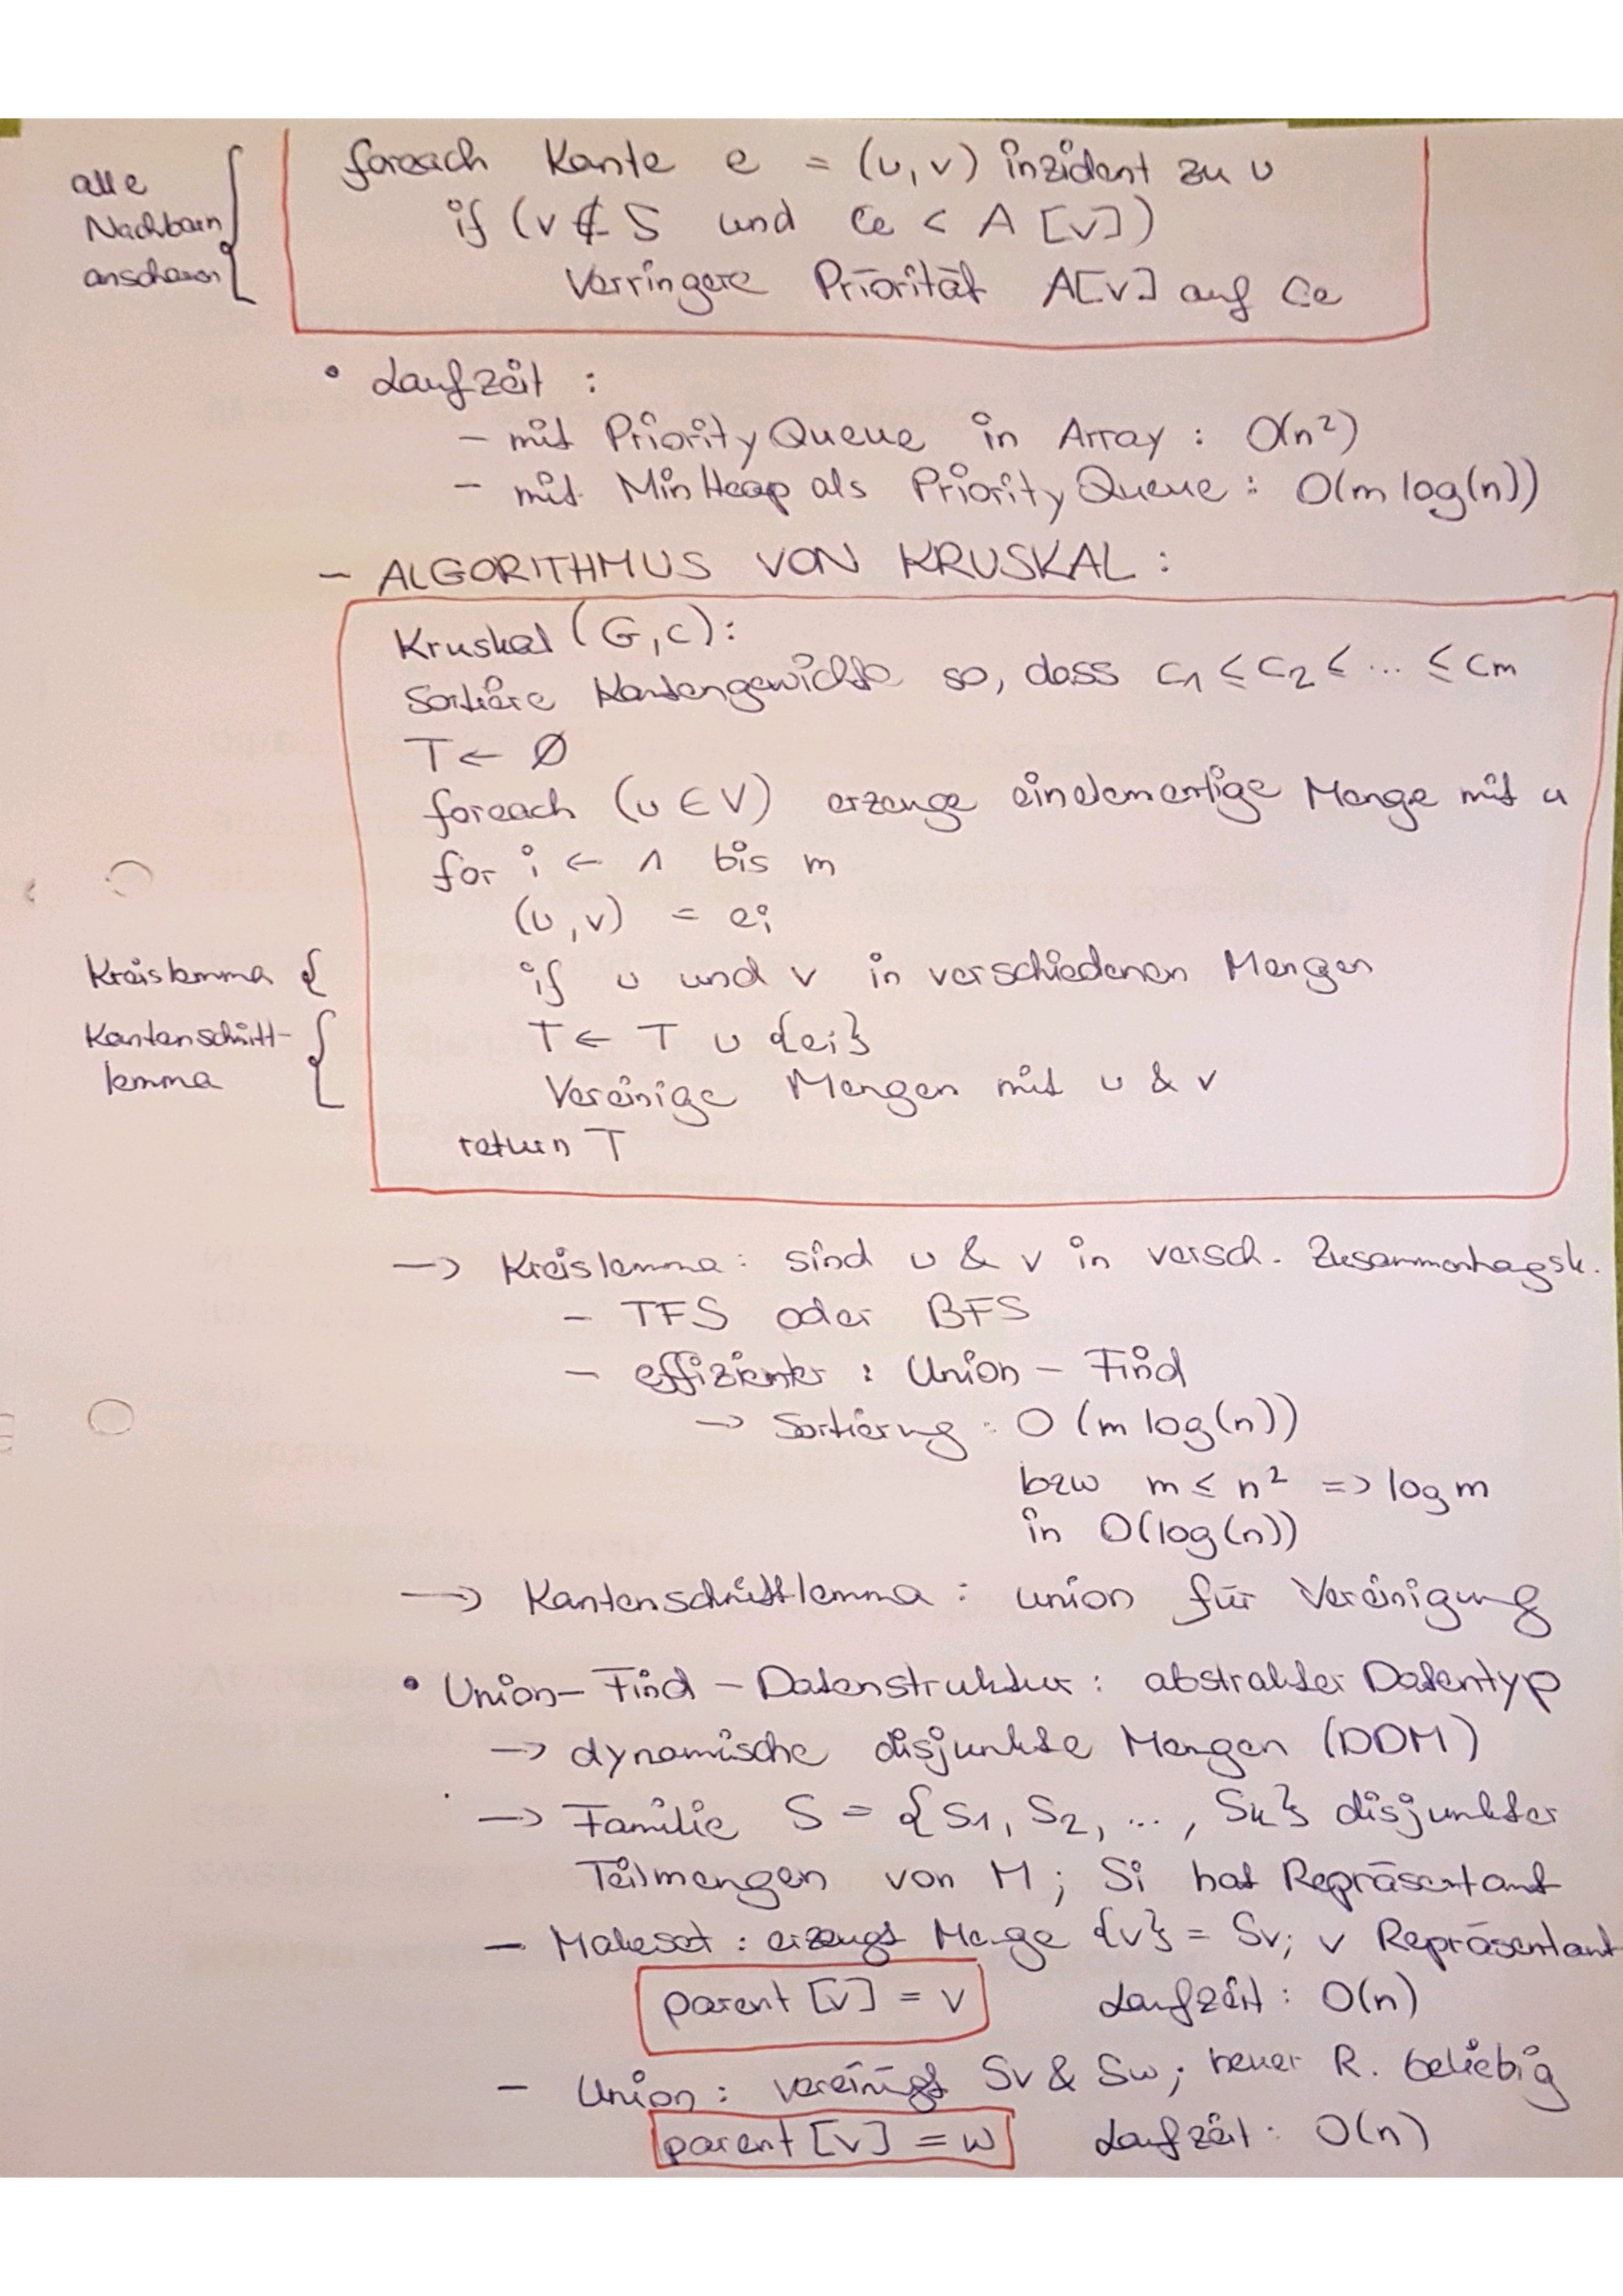 foreach Kante e = (u,v) inzident zu u
alle
Nachbarn
anschauen
if (v ∉ S und Ce < A [v])
Verringere Priorität A[v] auf Ce
• Laufzeit :
- mit PriorityQueue in Array : O(n²)
- mit MinHeap als PriorityQueue : O(m log(n))
- ALGORITHMUS VON KRUSKAL :
Kruskal (G,c):
Sortiere Kantengewichte so, dass c₁ ≤ c₂ ≤ ... ≤ cm
T ← Ø
foreach (u ∈ V) erzeuge einelementige Menge mit u
for i ← 1 bis m
(u,v) = ei
Kreislemma { if u und v in verschiedenen Mengen
Kantenschnitt-
lemma
T ← T ∪ {ei}
Vereinige Mengen mit u & v
return T
→ Kreislemma: sind u & v in versch. Zusammenhagsk.
- TFS oder BFS
- effizienter : Union - Find
→ Sortierung : O (m log(n))
bzw m ≤ n² => log m
in O(log(n))
→ Kantenschnittlemma : union für Vereinigung
• Union-Find-Datenstruktur: abstrakter Datentyp
→ dynamische disjunkte Mengen (DDM)
→ Familie S = {S₁, S₂, ..., Sk} disjunkter
Teilmengen von M; Si hat Repräsentant
- Makeset : erzeugt Menge {v} = Sv; v Repräsentant
parent [v] = v Laufzeit : O(n)
- Union: vereinigt Sv & Sw; neuer R. beliebig
parent [v] = w Laufzeit : O(n)